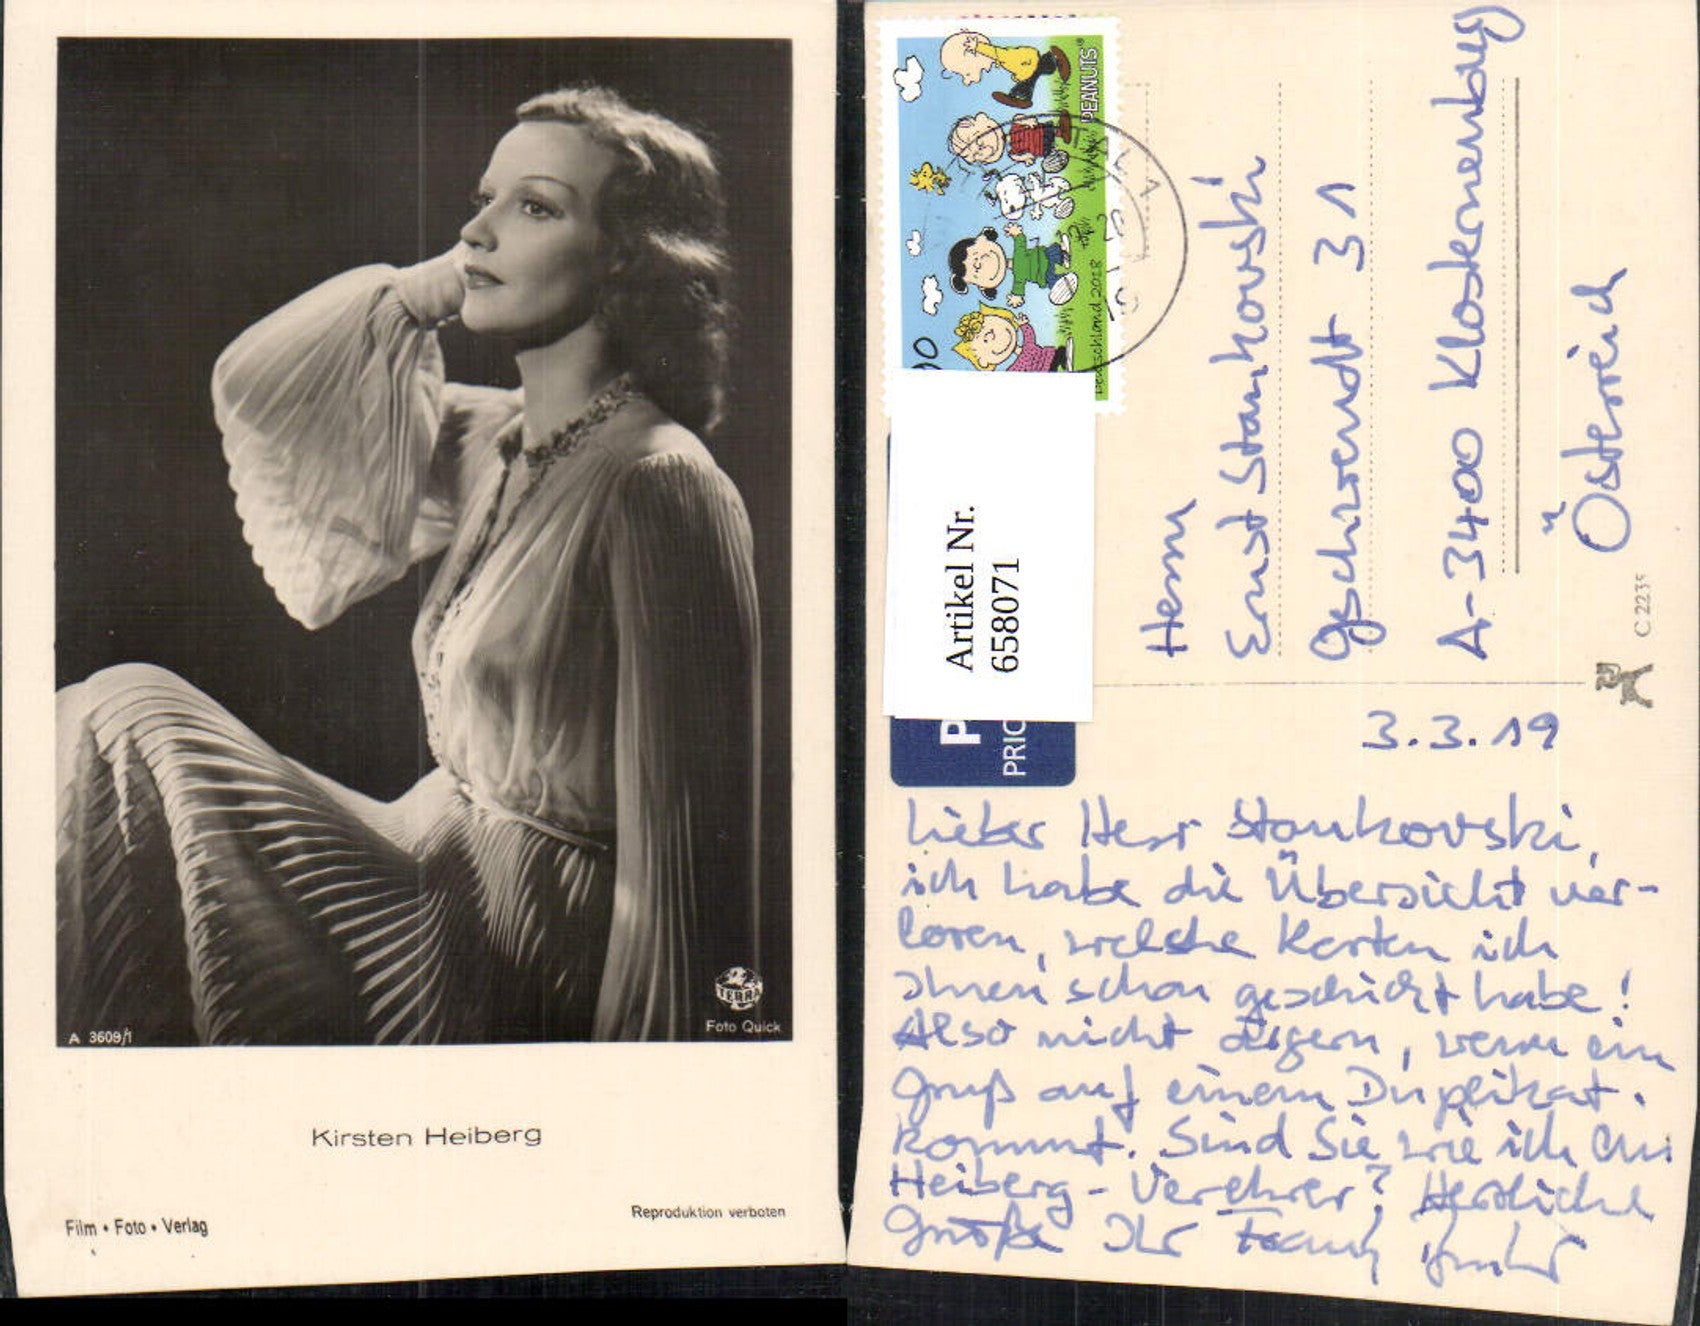 TERRA
Foto Quick
A 3609/1
Kirsten Heiberg
Film • Foto • Verlag
Reproduktion verboten
PEANUTS
Deutschland 2018
Artikel Nr.
658071
P
PRIO
Herrn
Ernst Stankovski
Gschwendt 31
A-3400 Klosterneuburg
Österreich
C 2235
3.3.19
Lieber Herr Stankovski,
ich habe die Übersicht ver-
loren, welche Karten ich
Ihnen schon geschickt habe!
Also nicht ärgern, wenn ein
Gruß auf einem Duplikat
kommt. Sind Sie wie ich ein
Heiberg-Verehrer? Herzliche
Grüße Ihr